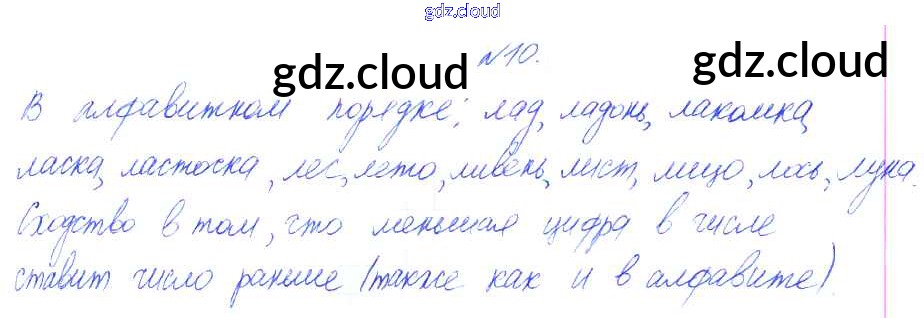 gdz.cloud
№10.
gdz.cloud gdz.cloud
В алфавитном порядке: лад, ладонь, лакомка,
ласка, ласточка, лес, лето, ливень, лист, лицо, лось, луна.
Сходство в том, что меньшая цифра в числе
ставит число раньше (также как и в алфавите).